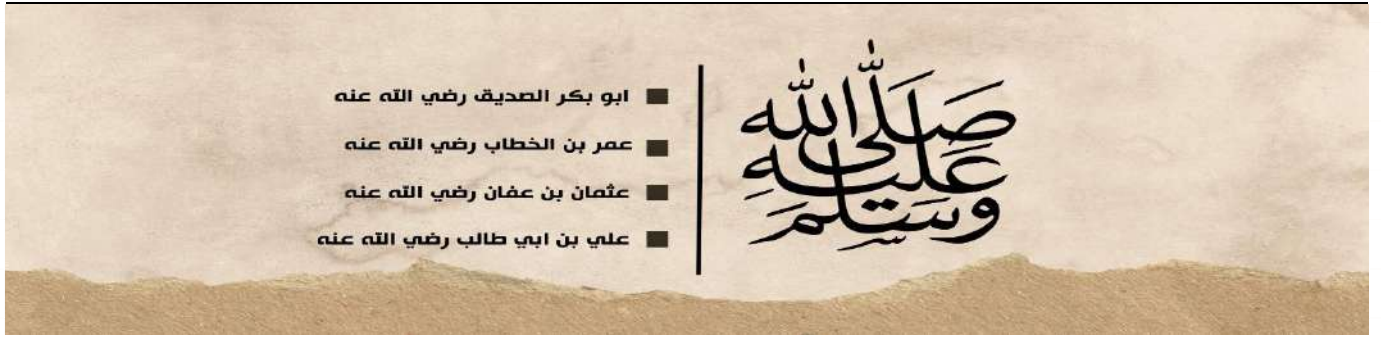 صَلَّى الله
عَلَيْهِ
وَسَلَّمَ
ابو بكر الصديق رضي الله عنه
عمر بن الخطاب رضي الله عنه
عثمان بن عفان رضي الله عنه
علي بن ابي طالب رضي الله عنه